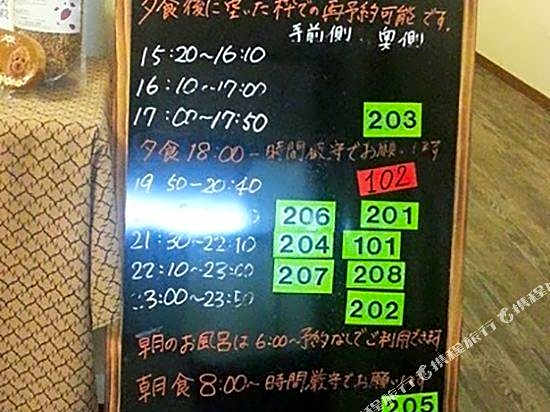 夕食後に空いた枠での再予約可能です。
手前側 奥側
15:20~16:10
16:10~17:00
17:00~17:50 203
夕食 18:00 - 時間厳守でお願いします
19 50-20:40 102
206 201
21:30-22:10 204 101
22:10-23:00 207 208
23:00-23:50 202
朝のお風呂は 6:00~予約なしでご利用でき
朝食 8:00~ 時間厳守でお願い
205
携程旅行